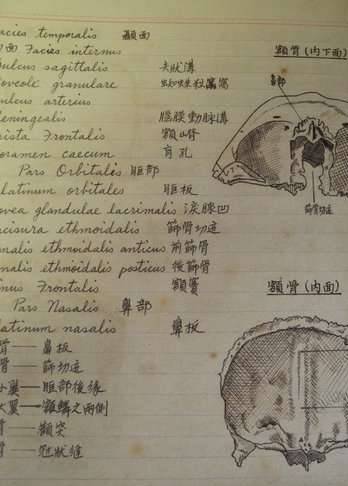 acies temporalis 顳面
面 Facies internus
ulcus sagittalis 矢狀溝
oveolé granulare
ulcus arterius
eningealis 腦膜動脈溝
rista Frontalis 額山脊
oramen caecum 盲孔
Pars Orbitalis 眶部
latinum orbitales 眶板
ovea glandulae lacrimalis 淚腺凹
ncisura ethmoidalis 篩骨切迹
nalis ethmoidalis anticus 前篩骨
nalis ethmoidalis posticus 後篩骨
nus Frontalis 額竇
Pars Nasalis 鼻部
latinum nasalis 鼻板
骨——鼻板
骨——篩切迹
小翼——眶部後緣
大翼——之兩側
骨——顴突
骨——冠狀縫
額骨(內下面)
鼻部
篩骨切迹
額骨(內面)